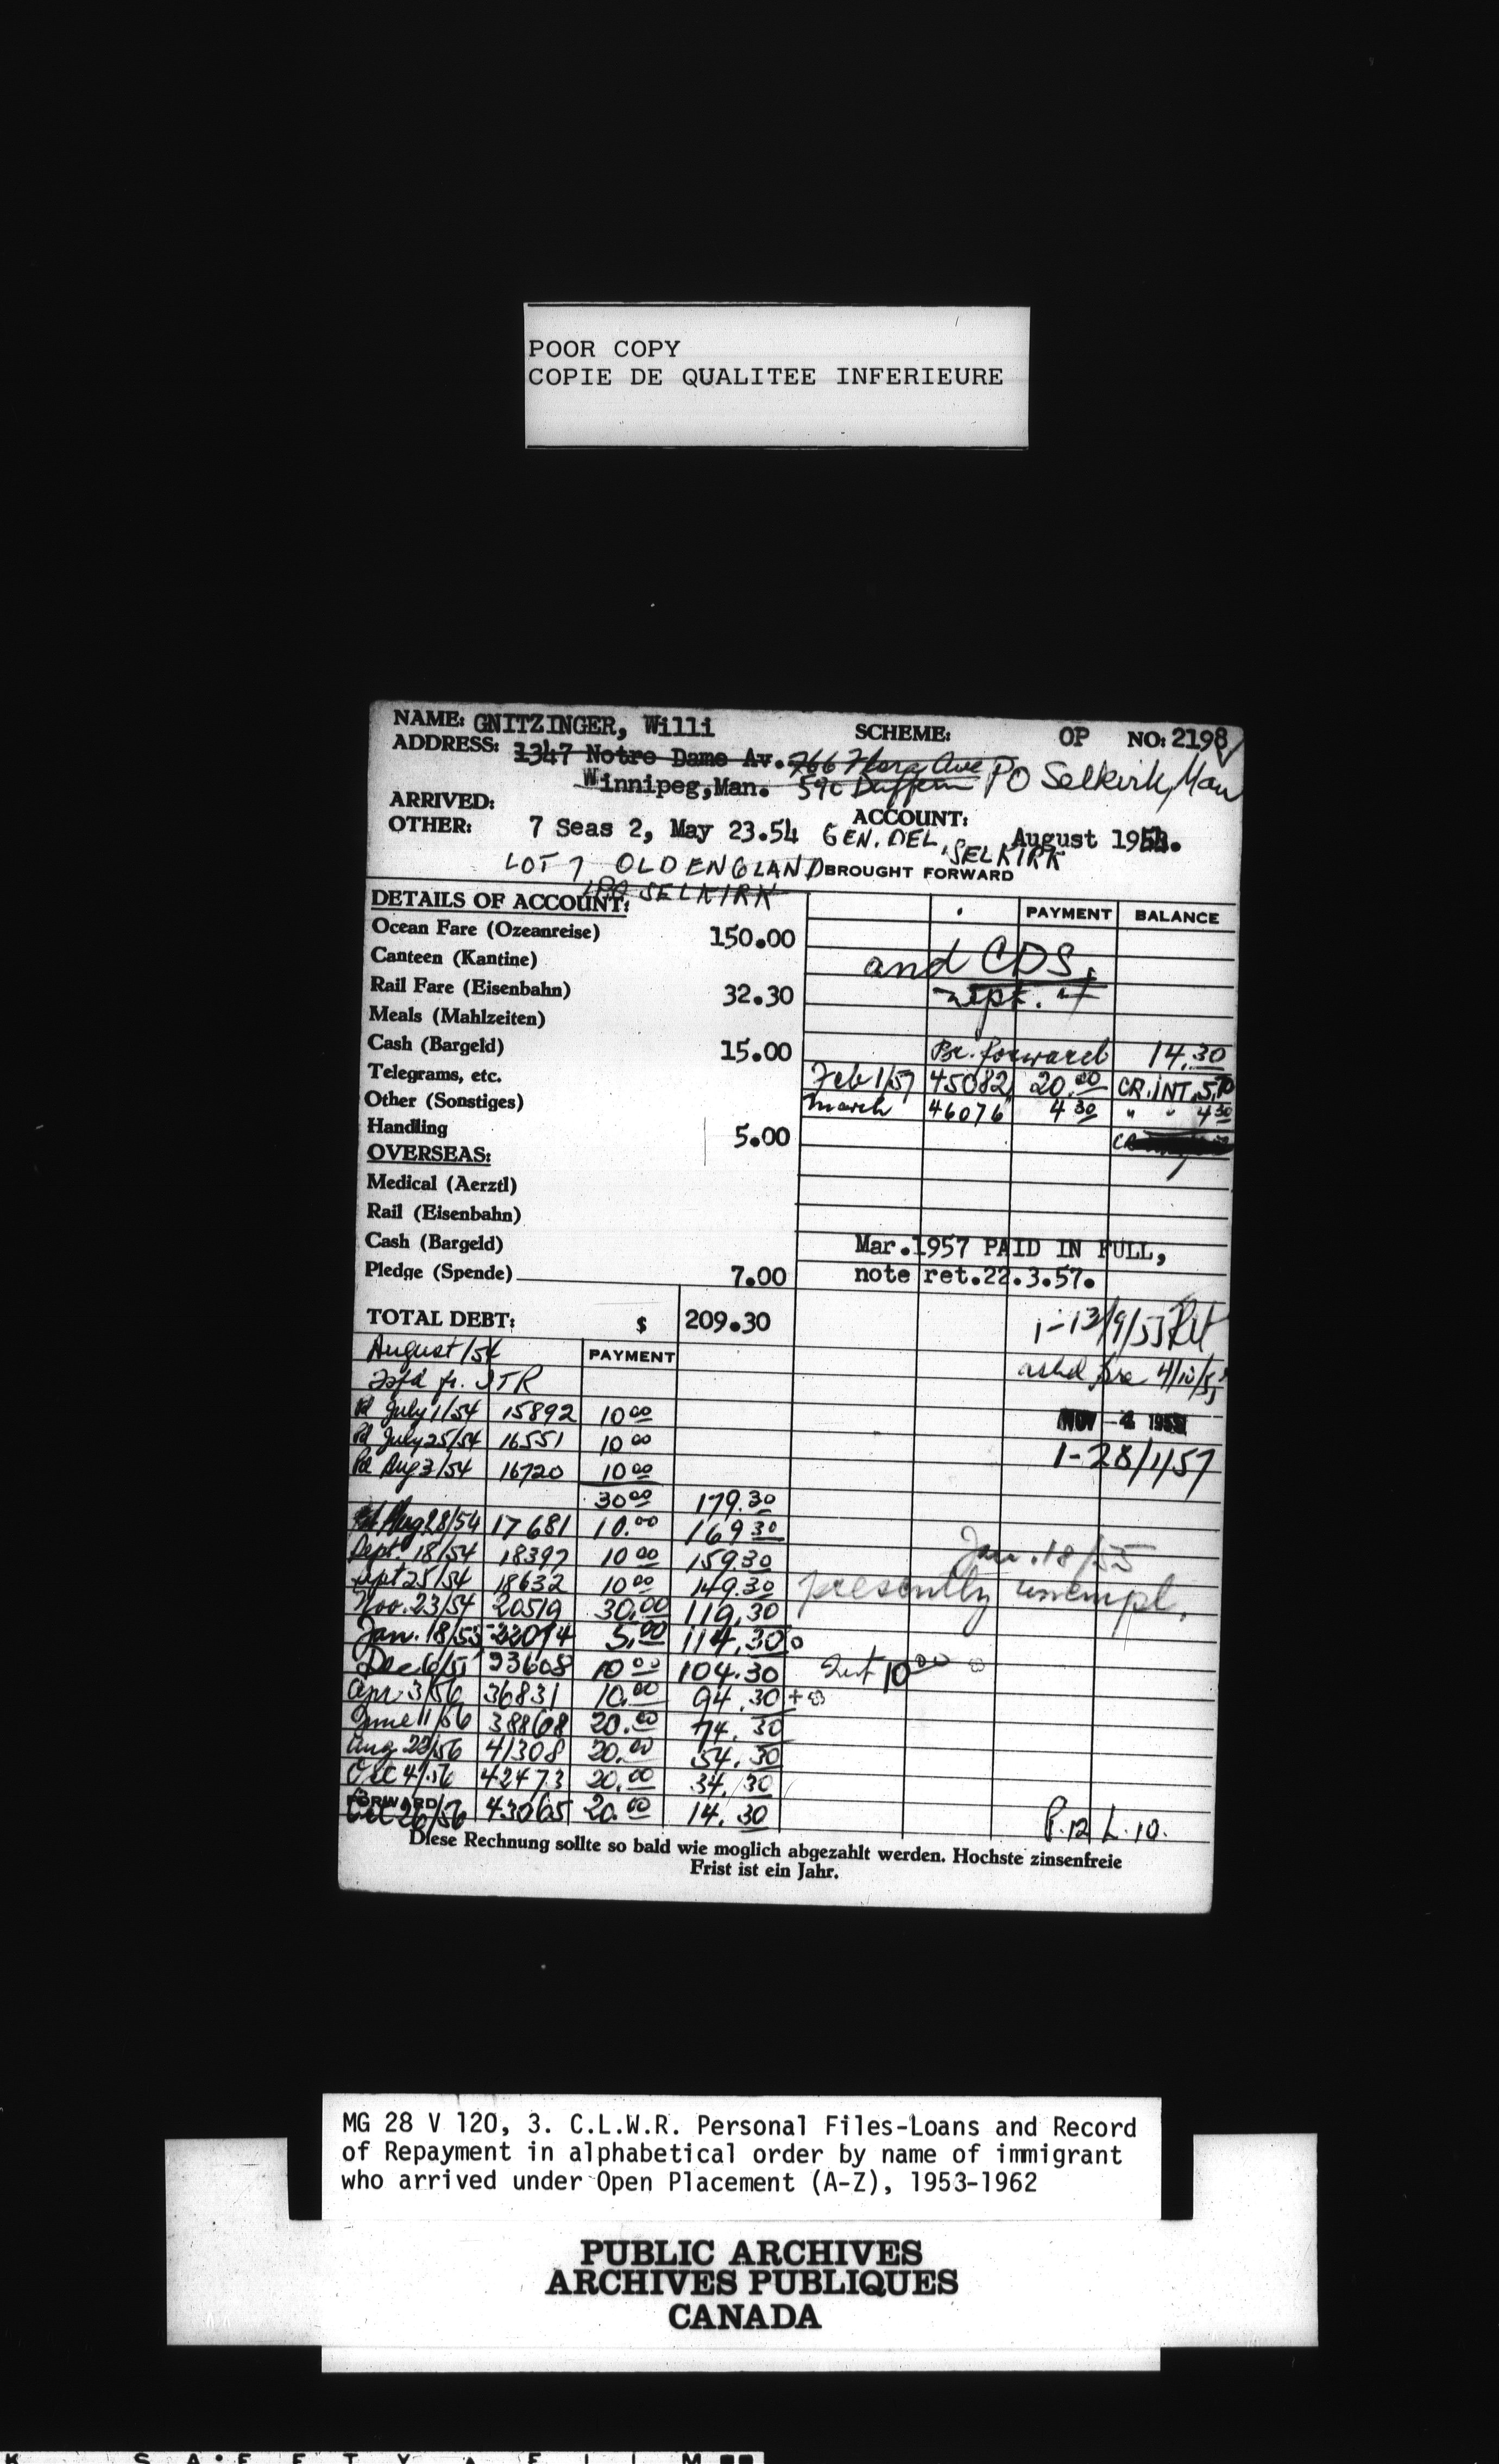 POOR COPY
COPIE DE QUALITEE INFERIEURE
NAME: GNITZINGER, Willi SCHEME: OP NO: 2198
ADDRESS: 1347 Notre Dame Av. 766 Flora Ave PO Selkirk, Man
Winnipeg,Man. 590 Dufferin
ARRIVED: ACCOUNT:
OTHER: 7 Seas 2, May 23.54 GEN. DEL, SELKIRK August 1954.
LOT 7 OLD ENGLAND BROUGHT FORWARD
PO SELKIRK
DETAILS OF ACCOUNT: PAYMENT BALANCE
Ocean Fare (Ozeanreise) 150.00
Canteen (Kantine) and CDS.
Rail Fare (Eisenbahn) 32.30
Meals (Mahlzeiten)
Cash (Bargeld) 15.00 Br. forward 14.30
Telegrams, etc. Feb 1/57 45082 20.00 CR. INT. 5.70
Other (Sonstiges) March 46076 4 30 " " 4 30
Handling 5.00
OVERSEAS:
Medical (Aerztl)
Rail (Eisenbahn)
Cash (Bargeld) Mar.1957 PAID IN FULL,
Pledge (Spende) 7.00 note ret.22.3.57.
TOTAL DEBT: $ 209.30
August/54 PAYMENT
Tsfd fr. JTR
Pd July 1/54 15892 10 00
Pd July 25/54 16551 10 00 NOV -4 1955
Pd Aug 3/54 16720 10 00 1-28/1/57
30 00 179.30
Aug 28/54 17681 10.00 169 30
Sept. 18/54 18397 10 00 159.30 Jan. 18/55
Sept 25/54 18632 10 00 149.30 presently unempl.
Nov. 23/54 20519 30.00 119.30
Jan. 18/55 22094 5.00 114.30
Dec 6/55 33608 10 00 104.30 10 00
Apr. 3/56 36831 10.00 94.30
June 11/56 38868 20.00 74.30
Aug 22/56 41308 20.00 54.30
Oct 4/56 42473 20.00 34.30
FORWARD
Oct 26/56 43065 20.00 14.30 P.12 L.10.
Diese Rechnung sollte so bald wie moglich abgezahlt werden. Hochste zinsenfreie
Frist ist ein Jahr.
MG 28 V 120, 3. C.L.W.R. Personal Files-Loans and Record
of Repayment in alphabetical order by name of immigrant
who arrived under Open Placement (A-Z), 1953-1962
PUBLIC ARCHIVES
ARCHIVES PUBLIQUES
CANADA